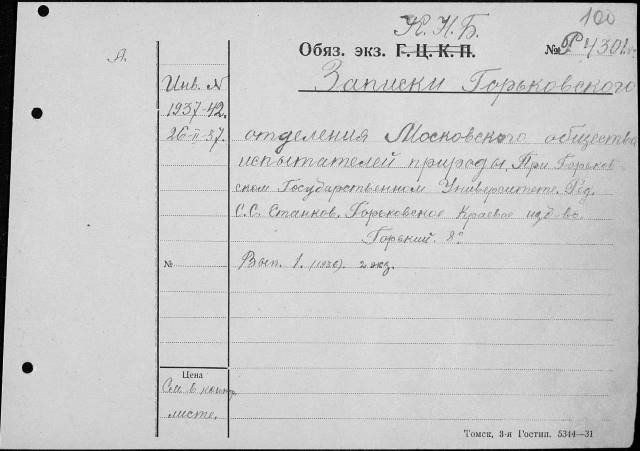 100
К.Н.Б.
Обяз. экз. Г. Ц. К. П. №
А.
Записки Горьковского
Инв. N
1937-42.
26-II-37.
отделения Московского общества
испытателей природы, При Горьков-
ском Государственном Университете. Ред.
С.С. Станков. Горьковское Краевое изд-во.
Горький. 8°
№ Вып. 1. (1936). 2 экз.
Цена
См. в контр.
листе.
Томск, 3-я Гостип. 5344—31